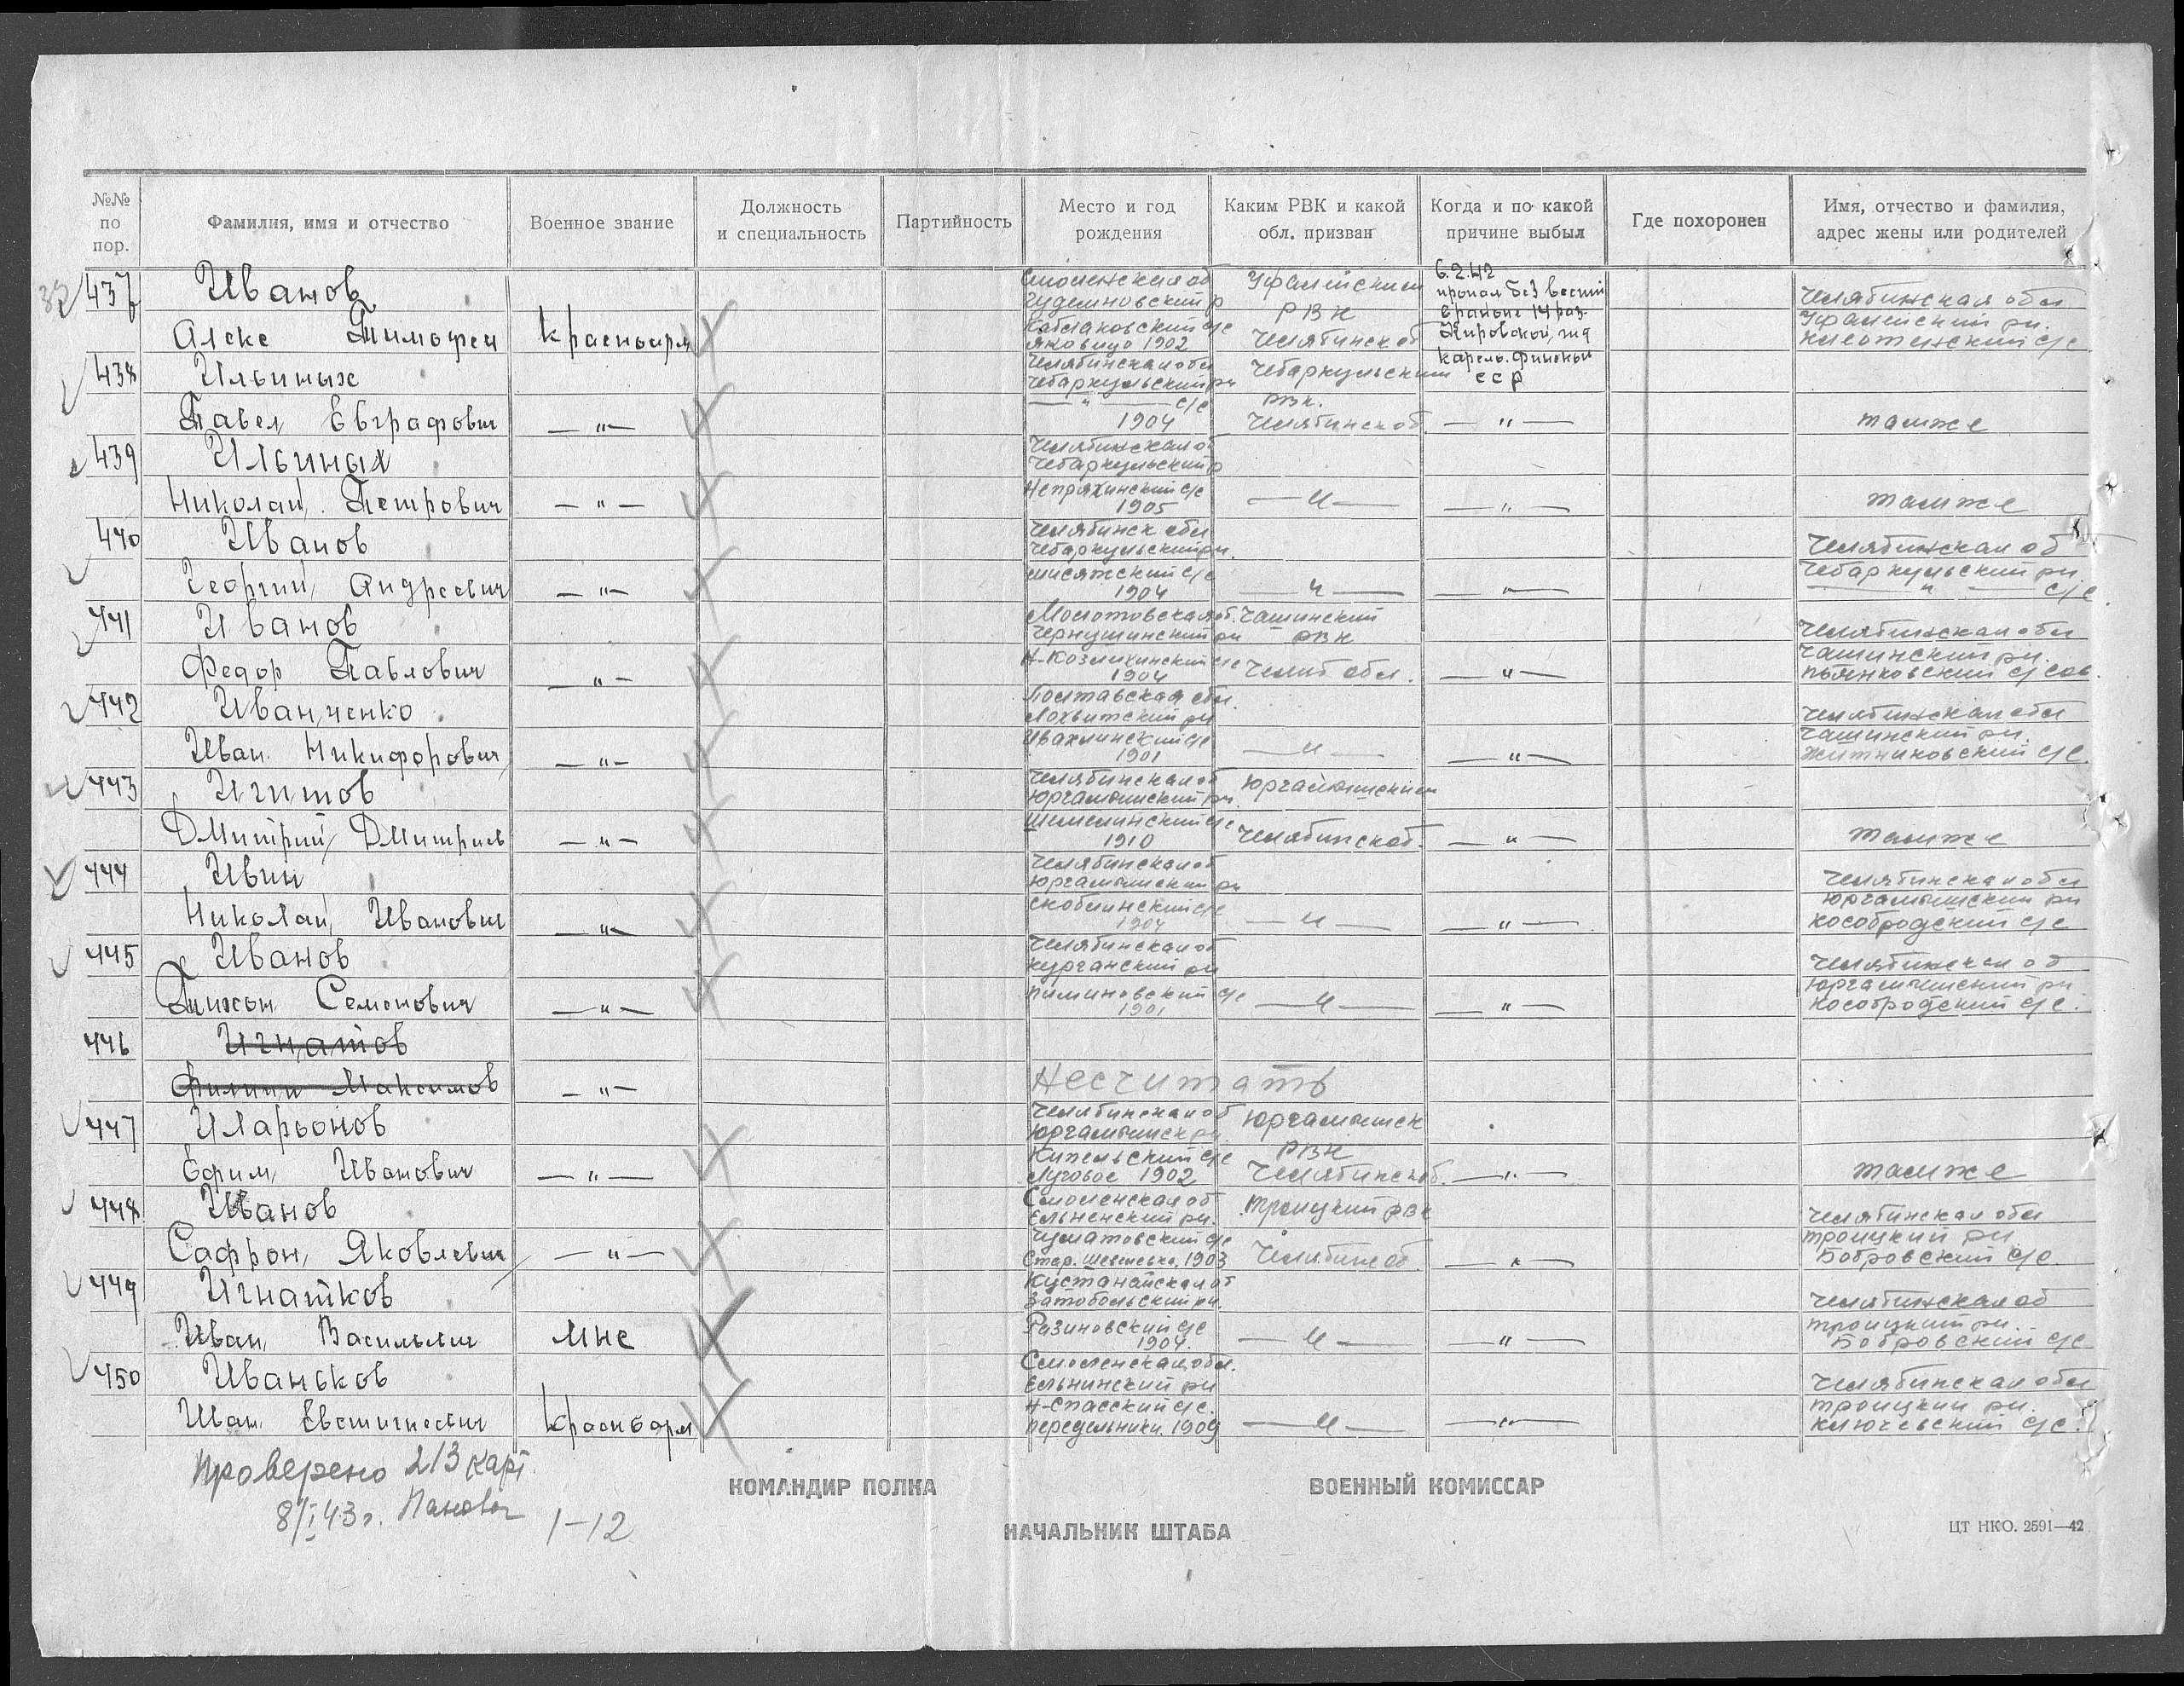 №№ по пор.
Фамилия, имя и отчество
Военное звание
Должность и специальность
Партийность
Место и год рождения
Каким РВК и какой обл. призван
Когда и по какой причине выбыл
Где похоронен
Имя, отчество и фамилия, адрес жены или родителей
437 Иванов
Алекс Тимофеи Красноарм
Смоленская об
Яковицо 1902
Уфалейским
РВК
Челябинск об
6.2.42
пропал без вести
в районе 14 раз.
Кировской, жд
карель. финской
сср
Челябинская обл
Уфалейский рн.
438 Ильиных
Павел Евграфович — " —
Челябинская обл
Чебаркульский рн
— " — с/с
1904
Чебаркульским
РВК.
Челябинск об. — " — там же
439 Ильиных
Николай Петрович — " —
Челябинская об
Чебаркульский р
Непряхинский с/с
1905 — " — — " — там же
440 Иванов
Георгий Андреевич — " —
Челябинск обл
Чебаркульский рн.
1904 — " — — " —
Челябинская об
Чебаркульский рн
— " — с/с
441 Иванов
Федор Павлович — " —
Молотовская об.
Чернушинский рн
Н-Козлихинский с/с
1904
Чашинский
РВК
Челяб обл. — " —
Челябинская обл
Чашинский рн.
Пьянковский с/сов.
442 Иванченко
Иван Никифорович — " —
Полтавская обл.
Лохвитский рн
Ивахлинский с/с
1901 — " — — " —
Челябинская обл
Чашинский рн.
Житниковский с/с.
443 Игитов
Дмитрий Дмитриев — " —
Челябинская об
Юргамышский рн.
1910
Юргамышским
Челябинск об. — " — там же
444 Ивин
Николай Иванович — " —
Челябинская об
Юргамышский рн
Скоблинский с/с
1904 — " — — " —
Челябинская обл
Юргамышский рн
Кособродский с/с
445 Иванов
Тихон Семенович — " —
Челябинская об
Курганский рн
Пиминовский с/с
1901 — " — — " —
Челябинская об
Юргамышский рн
Кособродский с/с.
446 Игнатов
Филипп Максимов — " — Несчитать
447 Иларьонов
Ефим Иванович — " —
Челябинская об
Юргамышск рн.
Кипельский с/с
Луговое 1902
Юргамышск
РВК
Челябинск об. — " — там же
448 Иванов
Сафрон Яковлевич — " —
Смоленская об
Ельненский рн.
Стар. 1903
Троицкий рвк
Челябинс об. — " —
Челябинская обл
Троицкий рн
Бобровский с/с.
449 Игнатков
Иван Васильвич Мнс
Кустанайская об
Затобольский рн.
Разиновский с/с
1904. — " — — " —
Челябинская об
Троицкий рн.
Бобровский с/с
450 Иваньков
Иван Евстигнеевич Красноарм
Смоленская обл.
Ельнинский рн
Н-Спасский с/с.
Передельники. 1909 — " — — " —
Челябинская обл
Троицкий рн.
Ключевский с/с.
Проверено 213 карт.
8/I 43 г. Панова 1–12
КОМАНДИР ПОЛКА
ВОЕННЫЙ КОМИССАР
НАЧАЛЬНИК ШТАБА
ЦТ НКО. 2591—42